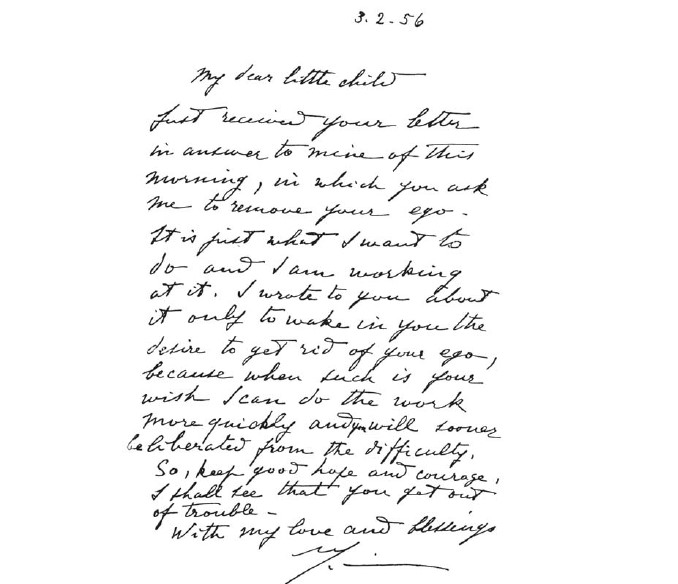 3.2.56
My dear little child
Just received your letter
in answer to mine of this
morning, in which you ask
me to remove your ego.
It is just what I want to
do and I am working
at it. I wrote to you about
it only to wake in you the
desire to get rid of your ego,
because when such is your
wish I can do the work
more quickly and you will sooner
be liberated from the difficulty.
So, keep good hope and courage,
I shall see that you get out
of trouble -
With my love and blessings